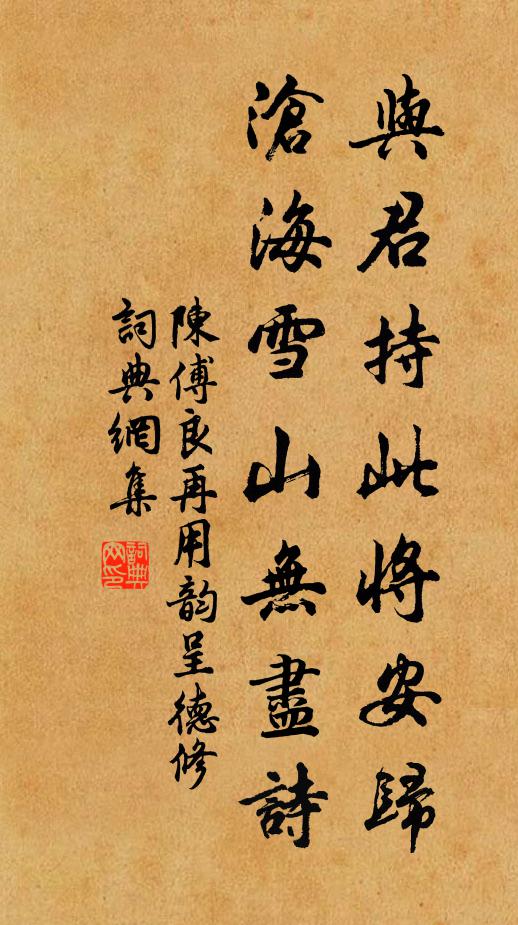 與君持此將安歸
滄海雪山無盡詩
陳傅良再用韵呈德修
詞典網集
詞典網印